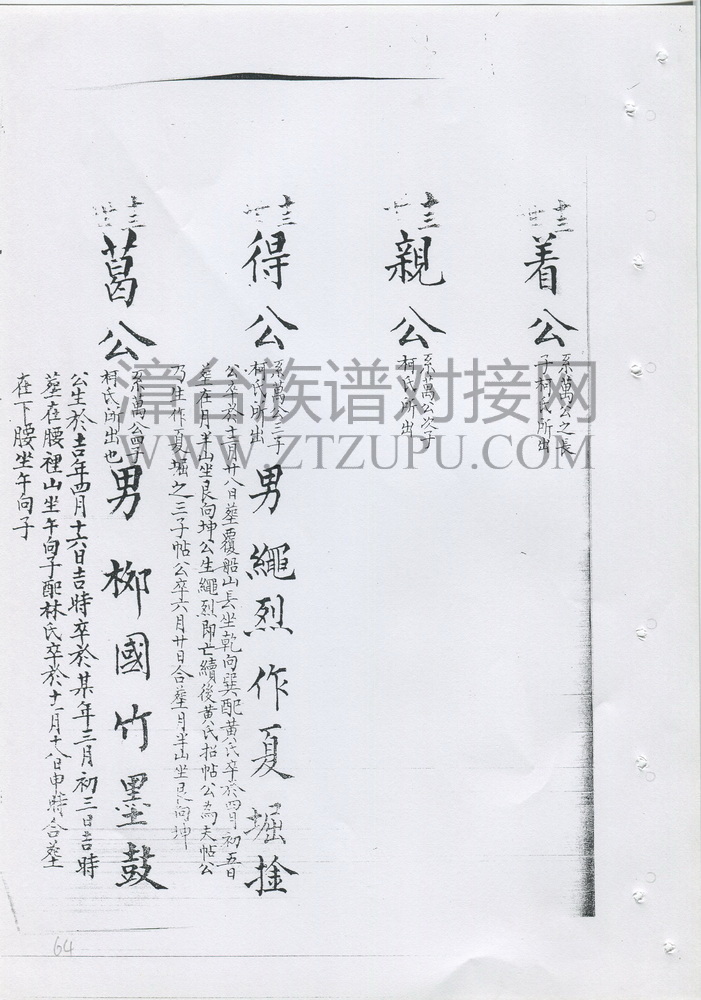 十三世
着公
系萬公之長
子柯氏所出
十三世
親公
系萬公次子
柯氏所出
十三世
得公
系萬公三子
柯氏所出
男繩烈作夏堀捦
公卒於十二月廿八日塟覆船山長坐乾向巽配黃氏卒於四月初五日
塟在月半山坐艮向坤公生繩烈即亡續後黃氏招帖公為夫帖公
乃生作夏堀之三子帖公卒六月廿日合塟月半山坐艮向坤
十三世
葛公
系萬公四子
柯氏所出也
男柳國竹墨鼓
公生於吉年四月十六日吉時卒於某年三月初三日吉時
塟在腰裡山坐午向子配林氏卒於十一月十八日申時合塟
在下腰坐午向子
漳台族谱对接网
WWW.ZTZUPU.COM
64